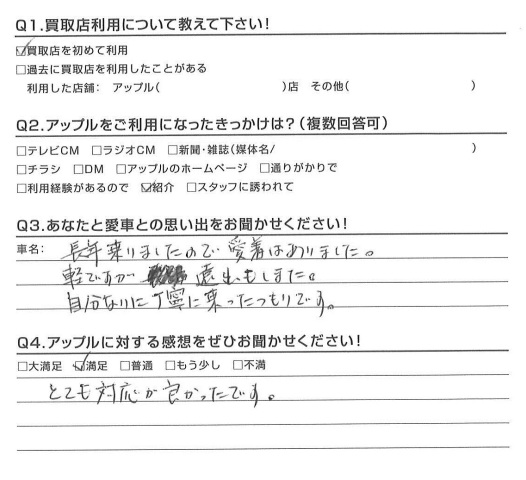 Q1.買取店利用について教えて下さい！
☑買取店を初めて利用
□過去に買取店を利用したことがある
利用した店舗： アップル（　　　　）店 その他（　　　　）
Q2.アップルをご利用になったきっかけは？（複数回答可）
□テレビCM □ラジオCM □新聞・雑誌（媒体名/　　　　）
□チラシ □DM □アップルのホームページ □通りがかりで
□利用経験があるので ☑紹介 □スタッフに誘われて
Q3.あなたと愛車との思い出をお聞かせください！
車名： 長年乗りましたので愛着はありました。
軽ですが 遠出もしました。
自分なりに丁寧に乗ったつもりです。
Q4.アップルに対する感想をぜひお聞かせください！
□大満足 ☑満足 □普通 □もう少し □不満
とても対応が良かったです。